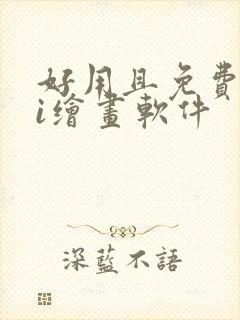 好用且免費
i繪畫軟件
深藍不語